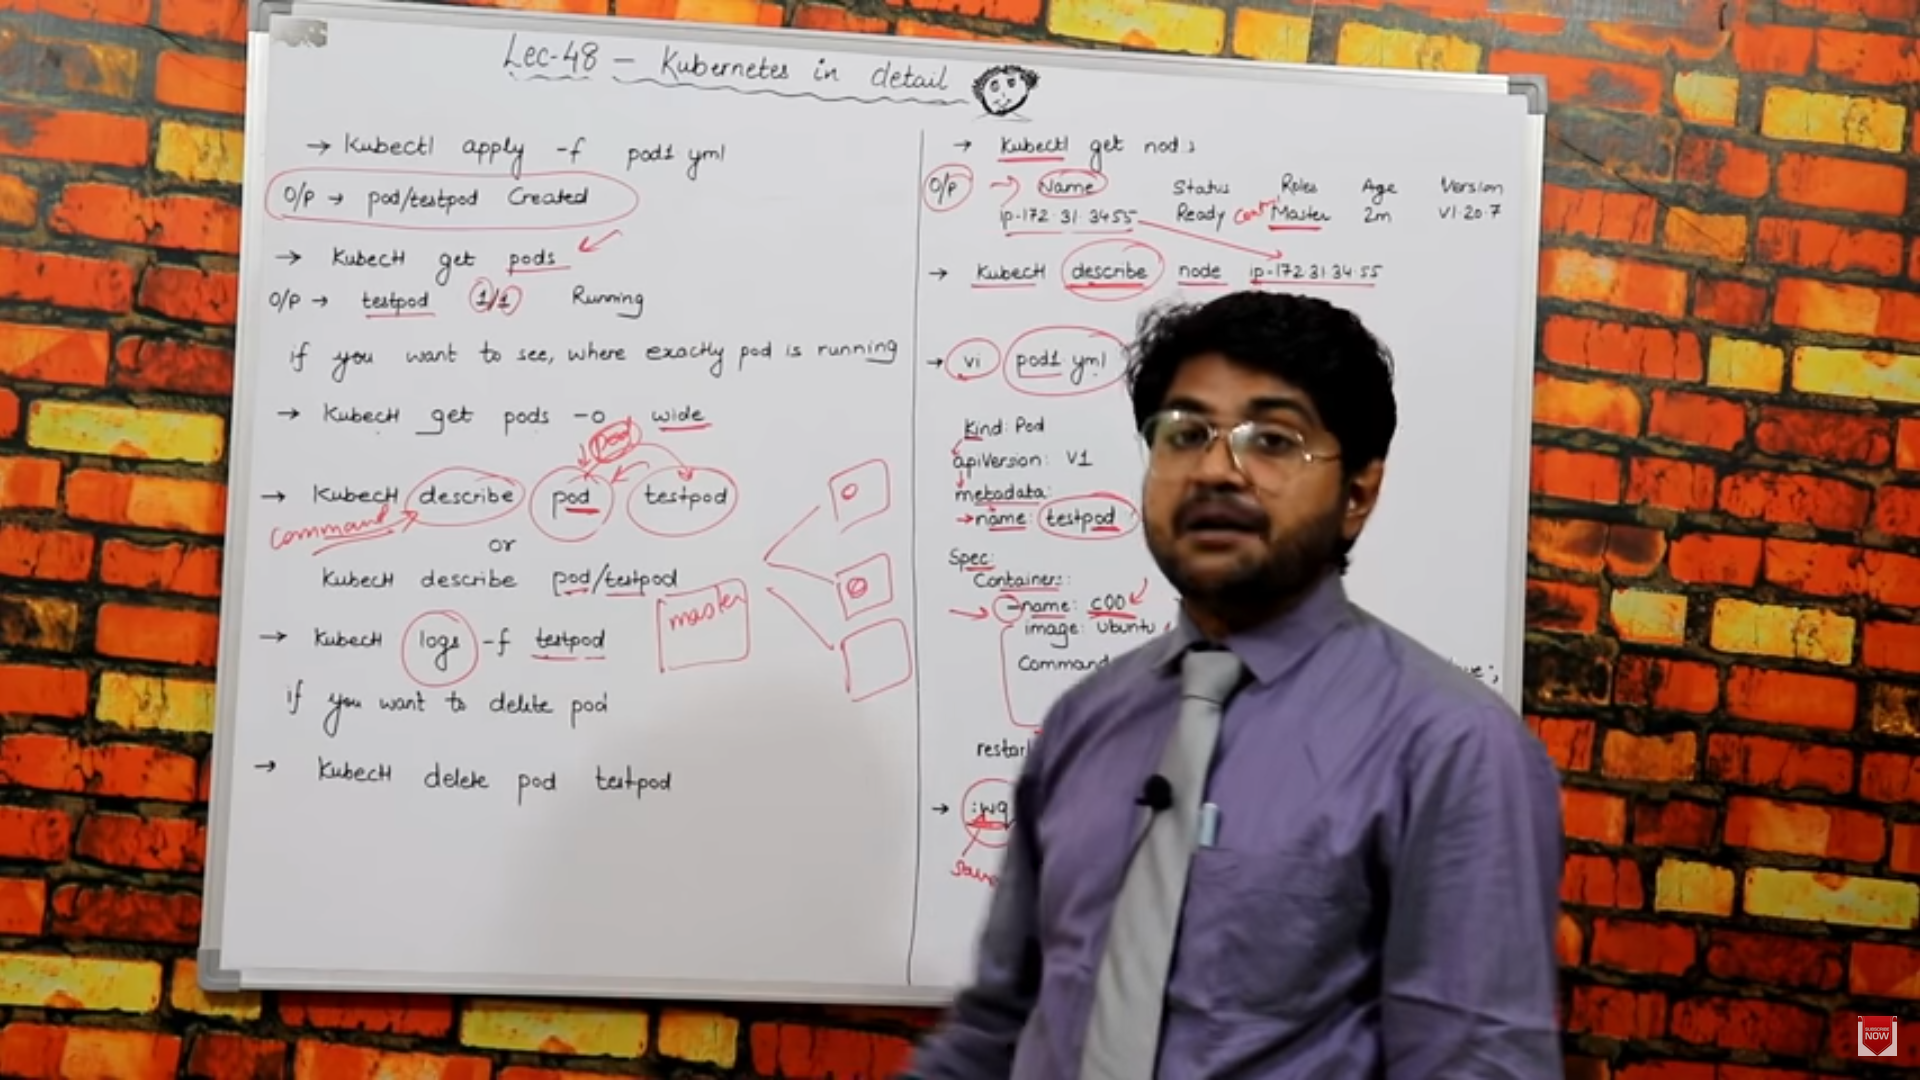 Lec-48 – Kubernetes in detail
→ Kubectl apply -f pod1.yml
O/P → pod/testpod Created
→ Kubectl get pods
O/P → testpod 1/1 Running
if you want to see, where exactly pod is running
→ Kubectl get pods -o wide
pod
→ Kubectl describe pod testpod
command
or
Kubectl describe pod/testpod
master
→ Kubectl logs -f testpod
if you want to delete pod
→ Kubectl delete pod testpod
→ Kubectl get nods
O/P → Name Status Roles Age Version
ip-172.31.34.55 Ready Master 2m V1.20.7
→ Kubectl describe node ip-172.31.34.55
→ vi pod1.yml
Kind: Pod
apiVersion: V1
metadata:
→ name: testpod
Spec:
Containers:
→ -name: c00
image: ubuntu
Command
→ :wq
SUBSCRIBE
NOW